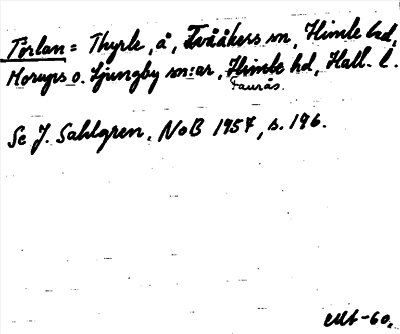 Törlan = Thyrle, å, Tvååkers sn, Himle hd,
Morups o. Ljungby sn:ar, Himle hd, Hall. l.
Faurås.
Se J. Sahlgren, NoB 1957, s. 196.
-60.